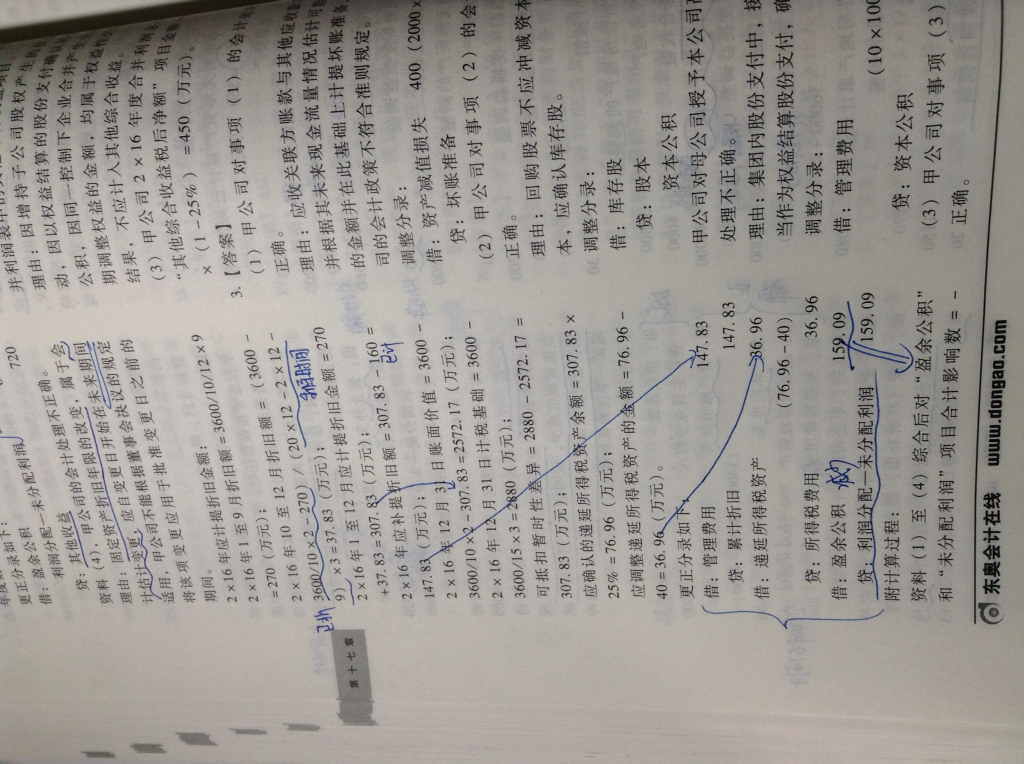 更正分录如下：
借：盈余公积
利润分配—未分配利润 720
贷：其他收益
资料（4），甲公司的会计处理不正确。
理由：固定资产折旧年限的改变，属于会
计估计变更，应自变更日开始在未来期间
适用，甲公司不能根据董事会决议的规定
将该项变更应用于批准变更日之前的
期间。
2×16年应计提折旧金额：
2×16年1至9月折旧额=3600/10/12×9
=270（万元）；
2×16年10至12月折旧额=（3600-
3600/10×2-270）/（20×12-2×12-
9）×3=37.83（万元）；
2×16年1至12月应计提折旧金额=270
+37.83=307.83（万元）；
2×16年应补提折旧额=307.83-160=
147.83（万元）；
2×16年12月31日账面价值=3600-
3600/10×3-307.83=2572.17（万元）；
2×16年12月31日计税基础=3600-
3600/15×3=2880（万元）；
可抵扣暂时性差异=2880-2572.17=
307.83（万元）；
应确认的递延所得税资产余额=307.83×
25%=76.96（万元）；
应调整递延所得税资产的金额=76.96-
40=36.96（万元）。
更正分录如下：
借：管理费用 147.83
贷：累计折旧 147.83
借：递延所得税资产 36.96
（76.96-40）
贷：所得税费用 36.96
借：盈余公积 159.09
贷：利润分配—未分配利润 159.09
附计算过程：
资料（1）至（4）综合后对“盈余公积”
和“未分配利润”项目合计影响数=-
并利润表中的
理由：因增持子公司股权产生的
动，因以权益结算的股份支付确认
公积，因同一控制下企业合并产生
期调整权益的金额，均属于权益
结果，不应计入其他综合收益。
（3）甲公司2×16年度合并利润
“其他综合收益税后净额”项目金额
×（1-25%）=450（万元）。
3.【答案】
（1）甲公司对事项（1）的会计
正确。
理由：应收关联方账款与其他应收款
并根据其未来现金流量情况估计可能
的金额并在此基础上计提坏账准备，
司的会计政策不符合准则规定。
调整分录：
借：资产减值损失 400（2000×
贷：坏账准备
（2）甲公司对事项（2）的会
正确。
理由：回购股票不应冲减资本
本，应确认库存股。
调整分录：
借：库存股
贷：股本
资本公积
甲公司对母公司授予本公司高
处理不正确。
理由：集团内股份支付中，接
当作为权益结算股份支付，确
调整分录：
借：管理费用
（10×100
贷：资本公积
（3）甲公司对事项（3）
正确。
第十七章
已折
剩余时间
已计
东奥会计在线 www.dongao.com